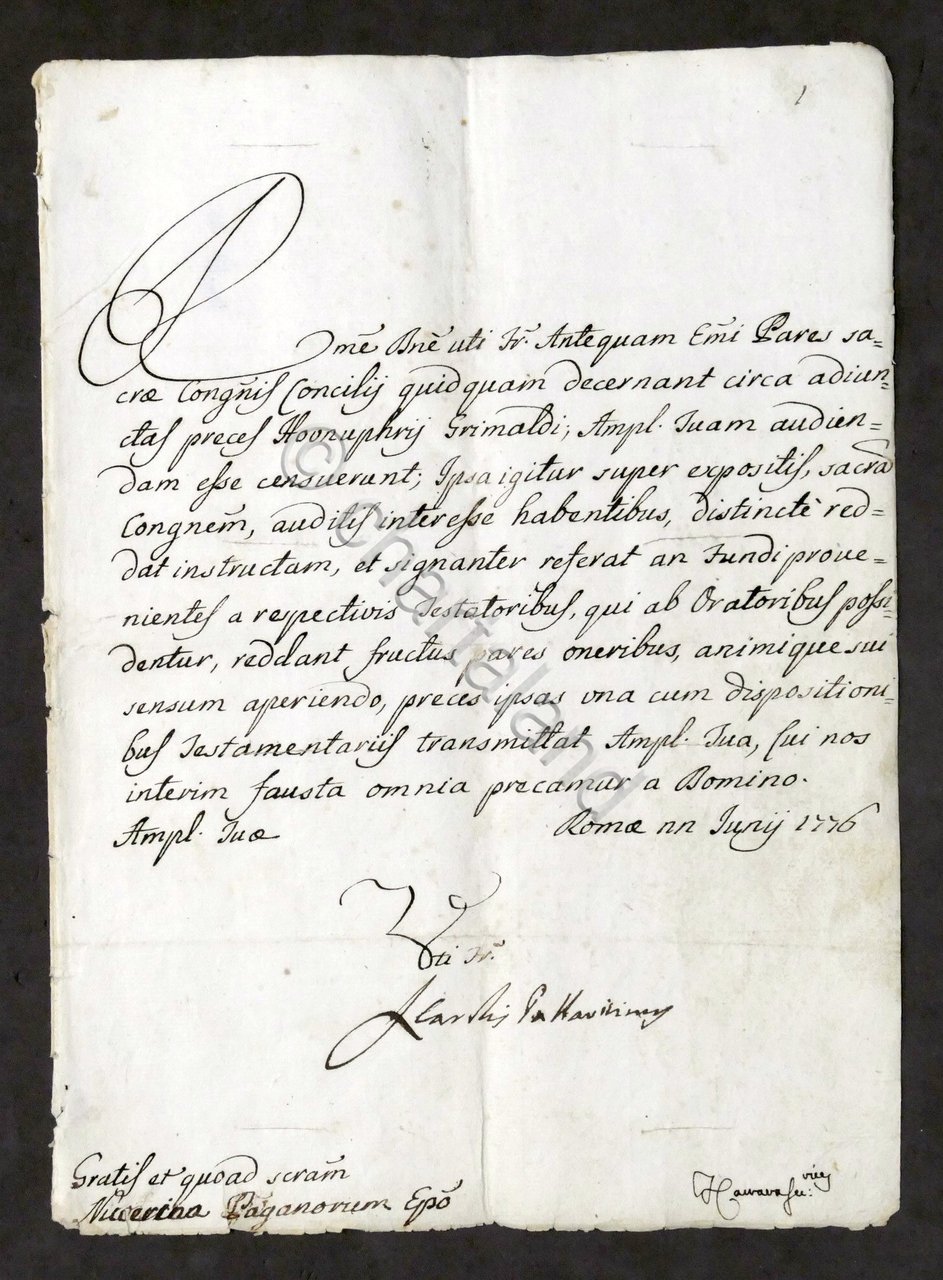 1
Rme Dne uti Fr. Antequam Emi Patres sa=
cræ Congnis Concilij quidquam decernant circa adiun=
ctas preces Honuphrij Grimaldi, Ampl. Tuam audien=
dam esse censuerunt; Ipsa igitur super expositis, sacrã
Congnem, auditis interesse habentibus, distinctè red=
dat instructam, et signanter referat an Fundi prove=
nientes a respectivis Testatoribus, qui ab Oratoribus possi=
dentur, reddant fructus pares oneribus, animique sui
sensum aperiendo, preces ipsas una cum dispositioni=
bus Testamentariis transmittat Ampl. Tua, Cui nos
interim fausta omnia precamur a Domino.
Ampl. Tuæ Romæ Junij 1776
Uti Fr.
Gratis et quoad scram
Nucerina Paganorum Epo
© chartaland